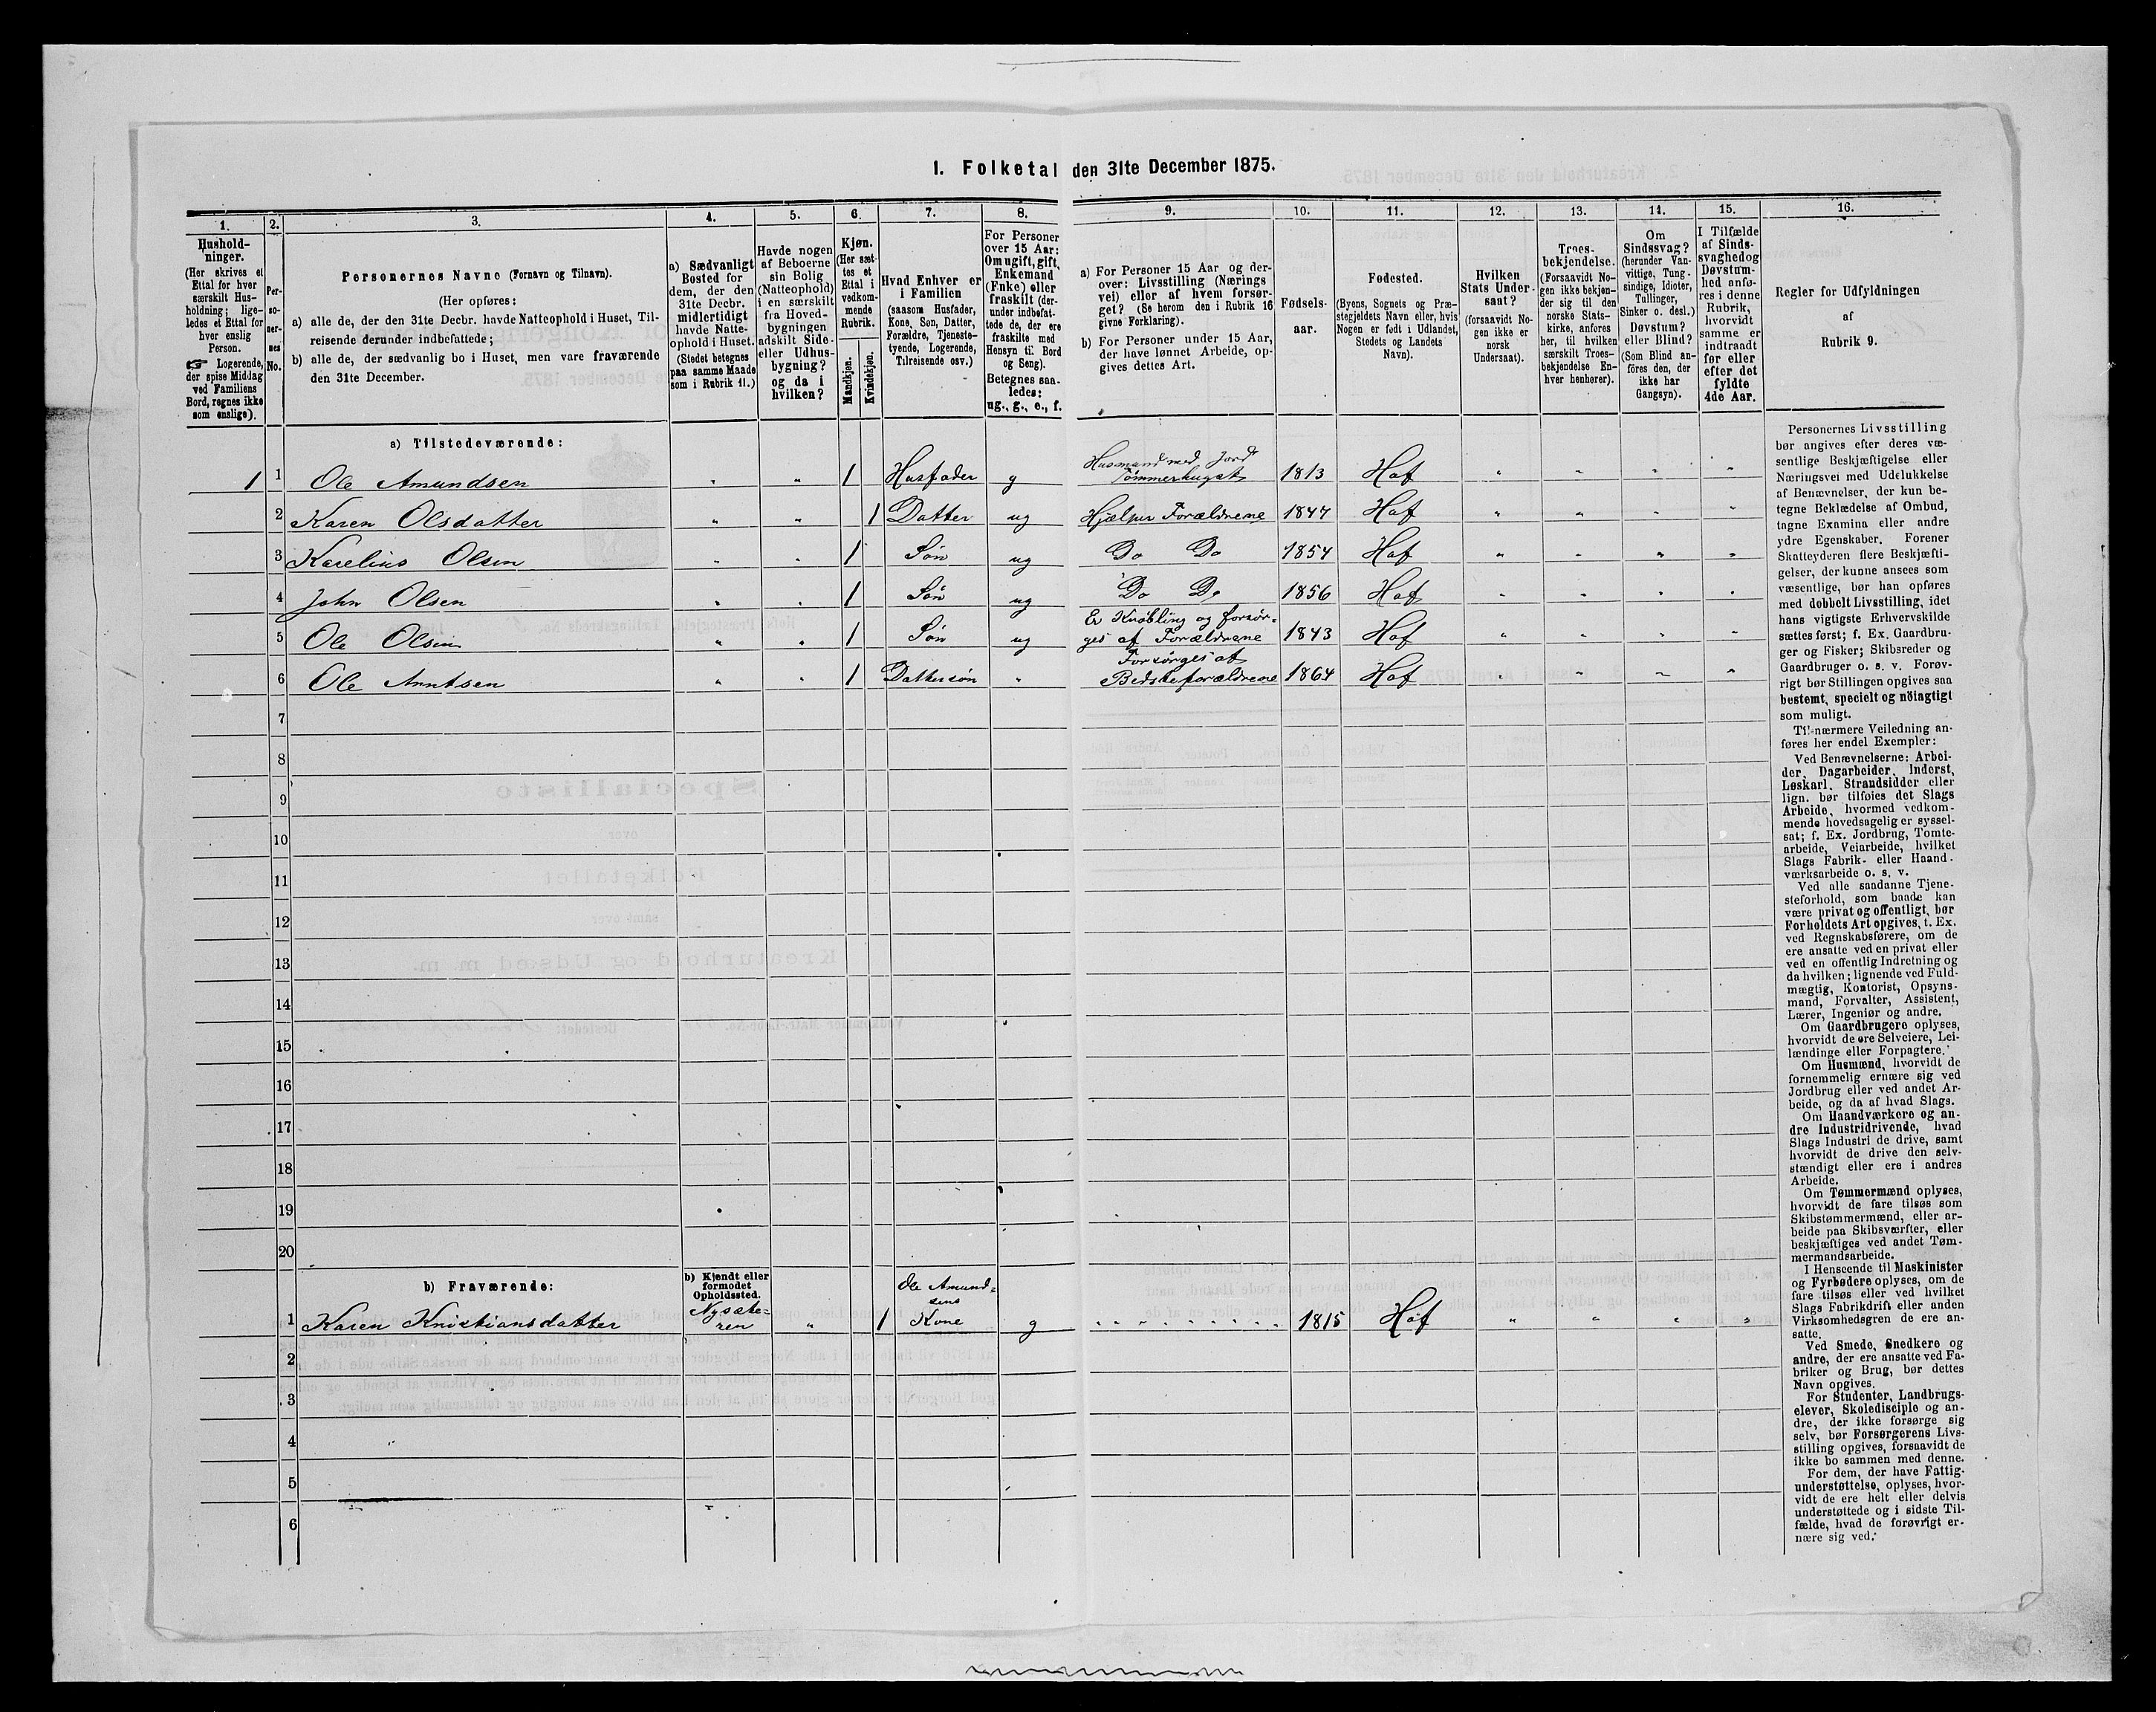 1. Folketal den 31te December 1875.
1.
2.
3.
4.
5.
6.
7.
8.
9.
10.
11.
12.
13.
14.
15.
16.
Hushold-
ninger.
(Her skrives et
Ettal for hver
særskilt Hus-
holdning; lige-
ledes et Ettal for
hver enslig
Person.
☞ Logerende,
der spise Middag
ved Familiens
Bord, regnes ikke
som enslige).
Per-
so-
ner-
nes
No.
Personernes Navne (Fornavn og Tilnavn).
(Her opføres:
a) alle de, der den 31te Decbr. havde Natteophold i Huset, Til-
reisende derunder indbefattede;
b) alle de, der sædvanlig bo i Huset, men vare fraværende
den 31te December.
a) Sædvanligt
Bosted for
dem, der den
31te Decbr.
midlertidigt
havde Natte-
ophold i Huset.
(Stedet betegnes
paa samme Maade
som i Rubrik 11.)
Havde nogen
af Beboerne
sin Bolig
(Natteophold)
i en særskilt
fra Hoved-
bygningen
adskilt Side-
eller Udhus-
bygning?
og da i
hvilken?
Kjøn.
(Her sæt-
tes et
Ettal i
vedkom-
mende
Rubrik.
Mandkjøn.
Kvindekjøn.
Hvad Enhver er
i Familien
(saasom Husfader,
Kone, Søn, Datter,
Forældre, Tjeneste-
tyende, Logerende,
Tilreisende osv.)
For Personer
over 15 Aar:
Om ugift, gift,
Enkemand
(Enke) eller
fraskilt (der-
under indbefat-
tede de, der ere
fraskilte med
Hensyn til Bord
og Seng).
Betegnes saa-
ledes:
ug., g., e., f.
a) For Personer 15 Aar og der-
over: Livsstilling (Nærings
vei) eller af hvem forsør-
get? (Se herom den i Rubrik 16
givne Forklaring).
b) For Personer under 15 Aar,
der have lønnet Arbeide, op-
gives dettes Art.
Fødsels-
aar.
Fødested.
(Byens, Sognets og Præ-
stegjeldets Navn eller, hvis
Nogen er født i Udlandet,
Stedets og Landets
Navn).
Hvilken
Stats Under-
saat?
(forsaavidt No-
gen ikke er
norsk
Undersaat).
Troes-
bekjendelse.
(Forsaavidt No-
gen ikke bekjen-
der sig til den
norske Stats-
kirke, anføres
her, til hvilken
særskilt Troes-
bekjendelse En-
hver henhører).
Om
Sindssvag?
(herunder Van-
vittige, Tung-
sindige, Idioter,
Tullinger,
Sinker o. desl.)
Døvstum?
eller Blind?
(Som Blind an-
föres den, der
ikke har
Gangsyn).
I Tilfælde
af Sinds-
svaghed og
Døvstum-
hed anfø-
res i denne
Rubrik,
hvorvidt
samme er
indtraadt
før eller
efter det
fyldte
4de Aar.
Regler for Udfyldningen
af
Rubrik 9.
a) Tilstedeværende:
1 1 Ole Amundsen " " 1 Husfader g Husmand med Jord Tømmerhugst 1813 Hof " " " "
2 Karen Olsdatter " " 1 Datter ug Hjælper Forældrene 1847 Hof " " " "
3 Karelius Olsen " " 1 Søn ug Do Do 1854 Hof " " " "
4 John Olsen " " 1 Søn ug Do Do 1856 Hof " " " "
5 Ole Olsen " " 1 Søn ug Er Krøbling og forsør-
ges af Forældrene 1843 Hof " " " "
6 Ole Arntsen " " 1 Dattersøn " Forsørges af
Bedsteforældrene 1864 Hof " " " "
7
8
9
10
11
12
13
14
15
16
17
18
19
20
b) Fraværende:
b) Kjendt eller
formodet
Opholdssted.
1 Karen Kristiansdatter Nysæte-
ren " 1 Ole Amund-
sens
Kone g " " " " " " " " " 1815 Hof " " " "
2
3
4
5
6
Personernes Livsstilling
bør angives efter deres væ-
sentlige Beskjæftigelse eller
Næringsvei med Udelukkelse
af Benævnelser, der kun be-
tegne Beklædelse af Ombud,
tagne Examina eller andre
ydre Egenskaber. Forener
Skatteyderen flere Beskjæfti-
gelser, der kunne ansees som
væsentlige, bør han opføres
med dobbelt Livsstilling, idet
hans vigtigste Erhvervskilde
sættes først; f. Ex. Gaardbru-
ger og Fisker; Skibsreder og
Gaardbruger o. s. v. Forøv-
rigt bør Stillingen opgives saa
bestemt, specielt og nöiagtigt
som muligt.
Til nærmere Veiledning an-
føres her endel Exempler:
Ved Benævnelserne: Arbei-
der, Dagarbeider, Inderst,
Løskarl, Strandsidder eller
lign. bør tilføies det Slags
Arbeide, hvormed vedkom-
mende hovedsagelig er syssel-
sat; f. Ex. Jordbrug, Tomte-
arbeide, Veiarbeide, hvilket
Slags Fabrik- eller Haand-
værksarbeide o. s. v.
Ved alle saadanne Tjene-
steforhold, som baade kan
være privat og offentligt, bør
Forholdets Art opgives, t. Ex.
ved Regnskabsførere, om de
ere ansatte ved en privat eller
ved en offentlig Indretning og
da hvilken; lignende ved Fuld-
mægtig, Kontorist, Opsyns-
mand, Forvalter, Assistent,
Lærer, Ingeniør og andre.
Om Gaardbrugere oplyses,
hvorvidt de ere Selveiere, Lei-
lændinge eller Forpagtere.
Om Husmænd, hvorvidt de
fornemmelig ernære sig ved
Jordbrug eller ved andet Ar-
beide, og da af hvad Slags.
Om Haandværkere og an-
dre Industridrivende, hvad
Slags Industri de drive, samt
hvorvidt de drive den selv-
stændigt eller ere i andres
Arbeide.
Om Tømmermænd oplyses,
hvorvidt de fare tilsøs som
Skibstømmermænd, eller ar-
beide paa Skibsværfter, eller
beskjæftiges ved andet Tøm-
mermandsarbeide.
I Henseende til Maskinister
og Fyrbødere oplyses, om de
fare tilsøs eller ved hvilket
Slags Fabrikdrift eller anden
Virksomhedsgren de ere an-
satte.
Ved Smede, Snedkere og
andre, der ere ansatte ved Fa-
briker og Brug, bør dettes
Navn opgives.
For Studenter, Landbrugs-
elever, Skoledisciple og an-
dre, der ikke forsørge sig
selv, bør Forsørgerens Livs-
stilling opgives, forsaavidt de
ikke bo sammen med denne.
For dem, der have Fattig-
understøttelse, oplyses, hvor-
vidt de ere helt eller delvis
understøttede og i sidste Til-
fælde, hvad de forøvrigt er-
nære sig ved.